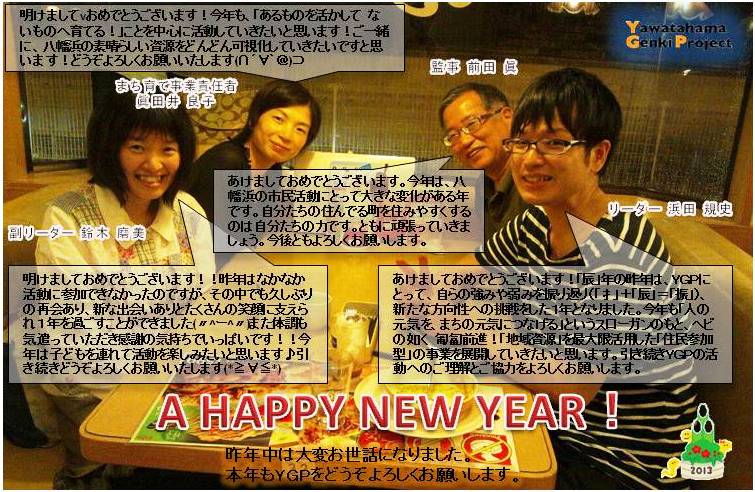 明けましてvおめでとうございます！今年も、「あるものを活かして な
いものへ育てる！」ことを中心に活動していきたいと思います！ご一緒
に、八幡浜の素晴らしい資源をどんどん可視化していきたいですと思
います！どうぞよろしくお願いいたします(∩´∀`@)⊃
Yawatahama
Genki Project
監事 前田 眞
まち育て事業責任者
眞田井 良子
あけましておめでとうございます。今年は、八
幡浜の市民活動にとって大きな変化がある年
です。自分たちの住んでる町を住みやすくする
のは自分たちの力です。ともに頑張っていきま
しょう。今後ともよろしくお願いします。
リーダー 浜田 規史
副リーダー 鈴木 磨美
明けましておめでとうございます！！昨年はなかなか
活動に参加できなかったのですが、その中でも久しぶり
の再会あり、新な出会いありとたくさんの笑顔に支えら
れ１年を過ごすことができました(〃^－^〃)また体調も
気遣っていただき感謝の気持ちでいっぱいです！！今
年は子どもを連れて活動を楽しみたいと思います♪引
き続きどうぞよろしくお願いいたします(*≧∀≦*)
あけましておめでとうございます！「辰」年の昨年は、YGPに
とって、自らの強みや弱みを振り返り(「扌」＋「辰」＝「振」)、
新たな方向性への挑戦をした１年となりました。今年も「人の
元気を、まちの元気につなげる」というスローガンのもと、ヘビ
の如く、匍匐前進！「地域資源」を最大限活用した「住民参加
型」の事業を展開していきたいと思います。引き続きYGPの活
動へのご理解とご協力をよろしくお願いします。
A HAPPY NEW YEAR！
昨年中は大変お世話になりました。
本年もYGPをどうぞよろしくお願いします。
2013